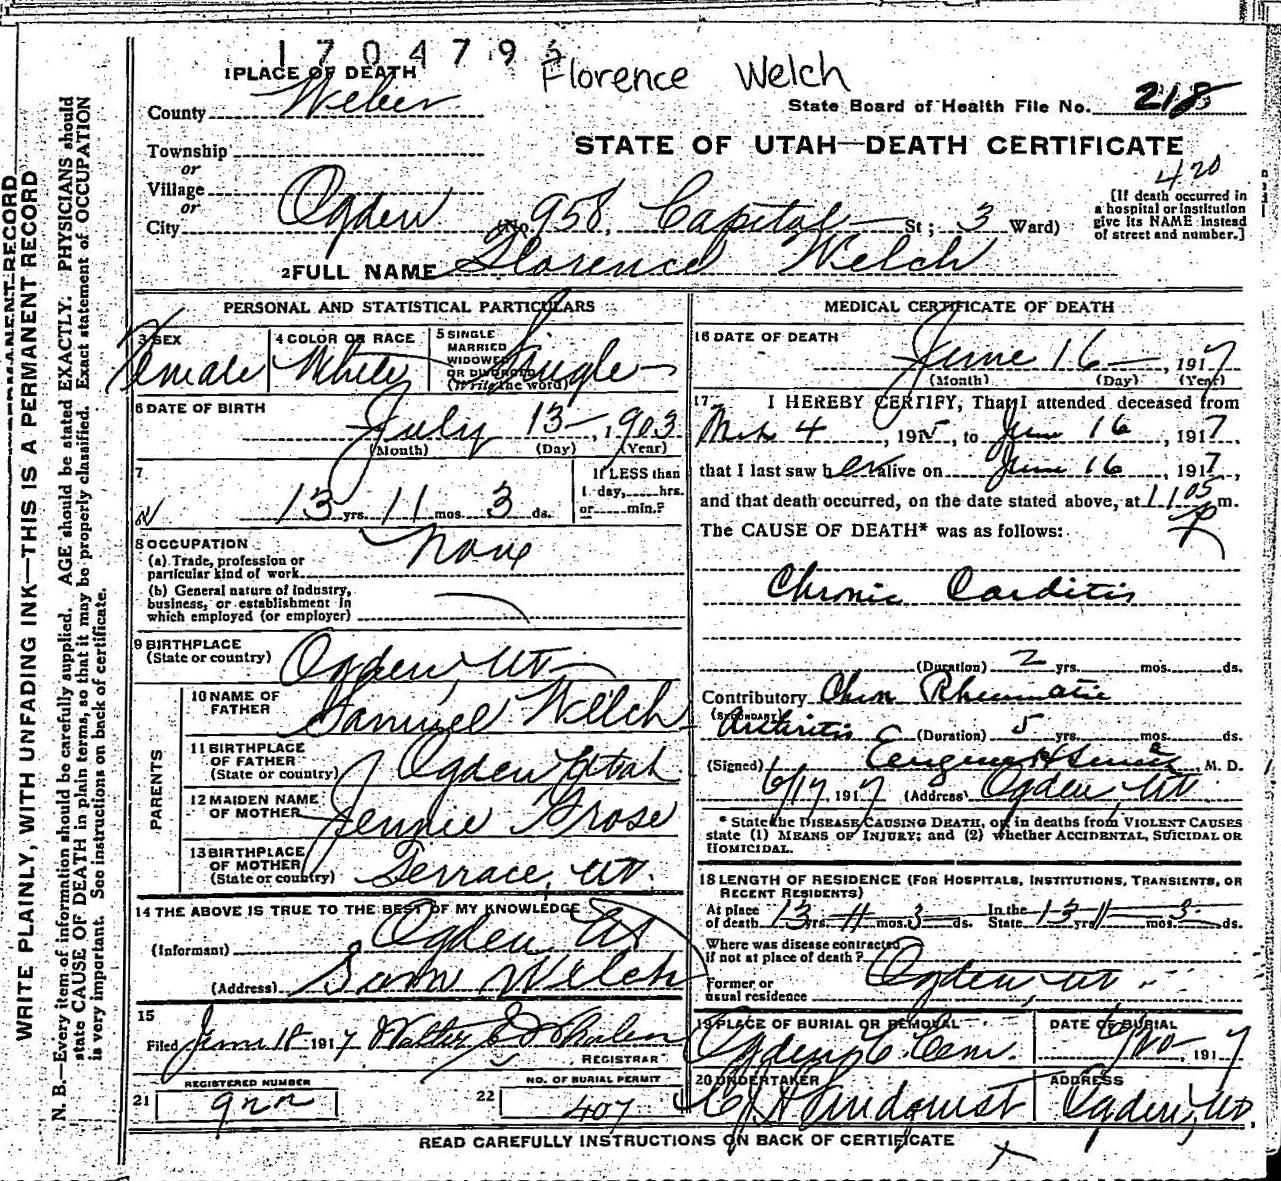 1704795
Florence Welch
1 PLACE OF DEATH
County Weber
State Board of Health File No. 218
STATE OF UTAH—DEATH CERTIFICATE
Township
or
Village
or
City Ogden (No. 958 Capital St; 3 Ward)
420
[If death occurred in
a hospital or institution
give its NAME instead
of street and number.]
2 FULL NAME Florence Welch
PERSONAL AND STATISTICAL PARTICULARS
3 SEX
Female
4 COLOR OR RACE
White
5 SINGLE
MARRIED
WIDOWED
OR DIVORCED
(Write the word)
Single
6 DATE OF BIRTH
July 13, 1903
(Month) (Day) (Year)
7
13 yrs. 11 mos. 3 ds.
If LESS than
1 day, hrs.
or min.?
8 OCCUPATION
(a) Trade, profession or
particular kind of work
None
(b) General nature of industry,
business, or establishment in
which employed (or employer)
9 BIRTHPLACE
(State or country) Ogden, Ut
PARENTS
10 NAME OF
FATHER
Samuel Welch
11 BIRTHPLACE
OF FATHER
(State or country) Ogden Utah
12 MAIDEN NAME
OF MOTHER
Jennie Grose
13 BIRTHPLACE
OF MOTHER
(State or country) Terrace, Ut.
14 THE ABOVE IS TRUE TO THE BEST OF MY KNOWLEDGE
(Informant) Ogden Ut
(Address) Sam Welch
15
Filed June 18 1917 Walter
REGISTRAR
REGISTERED NUMBER
21 922
NO. OF BURIAL PERMIT
22 407
MEDICAL CERTIFICATE OF DEATH
16 DATE OF DEATH
June 16, 1917
(Month) (Day) (Year)
17 I HEREBY CERTIFY, That I attended deceased from
Mch 4, 1915, to June 16, 1917,
that I last saw her alive on June 16, 1917,
and that death occurred, on the date stated above, at 11 05 P m.
The CAUSE OF DEATH* was as follows:
Chronic Carditis
(Duration) 2 yrs. mos. ds.
Contributory Chron Rheumatic
(SECONDARY)
Arthritis (Duration) 5 yrs. mos. ds.
(Signed) Eugene H Smith M. D.
6/17, 1917 (Address) Ogden, Ut
* State the DISEASE CAUSING DEATH, or, in deaths from VIOLENT CAUSES
state (1) MEANS OF INJURY; and (2) whether ACCIDENTAL, SUICIDAL OR
HOMICIDAL.
18 LENGTH OF RESIDENCE (FOR HOSPITALS, INSTITUTIONS, TRANSIENTS, OR
RECENT RESIDENTS)
At place
of death 13 yrs. 11 mos. 3 ds.
In the
State 13 yrs 11 mos. 3 ds.
Where was disease contracted
if not at place of death?
Former or
usual residence
Ogden, Ut
19 PLACE OF BURIAL OR REMOVAL
Ogden C. Cem.
DATE OF BURIAL
6/20, 1917
20 UNDERTAKER
Lindquist
ADDRESS
Ogden, Ut
READ CAREFULLY INSTRUCTIONS ON BACK OF CERTIFICATE
WRITE PLAINLY, WITH UNFADING INK—THIS IS A PERMANENT RECORD
N. B.—Every item of information should be carefully supplied. AGE should be stated EXACTLY. PHYSICIANS should
state CAUSE OF DEATH in plain terms, so that it may be properly classified. Exact statement of OCCUPATION
is very important. See instructions on back of certificate.